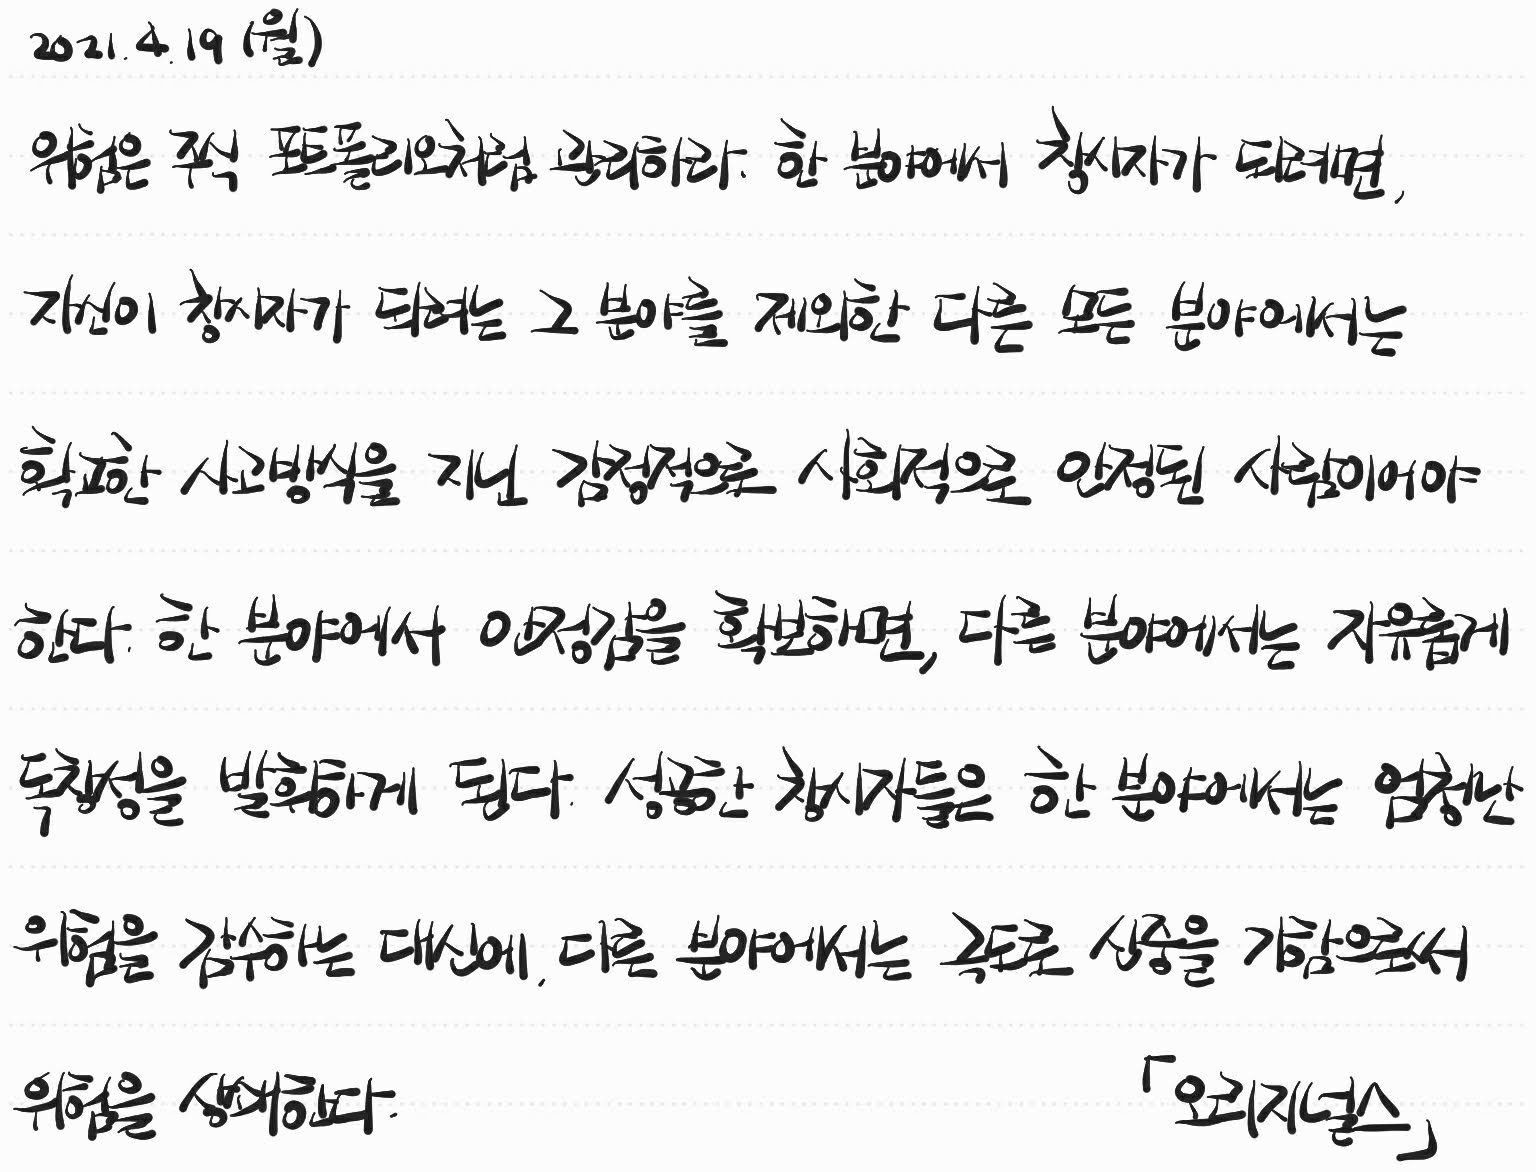 2021. 4. 19 (월)
위험은 주식 포트폴리오처럼 관리하라. 한 분야에서 창시자가 되려면,
자신이 창시자가 되려는 그 분야를 제외한 다른 모든 분야에서는
확고한 사고방식을 지닌 감정적으로 사회적으로 안정된 사람이어야
한다. 한 분야에서 안정감을 확보하면, 다른 분야에서는 자유롭게
독창성을 발휘하게 된다. 성공한 창시자들은 한 분야에서는 엄청난
위험을 감수하는 대신에, 다른 분야에서는 극도로 신중을 기함으로써
위험을 상쇄한다.
「오리지널스」